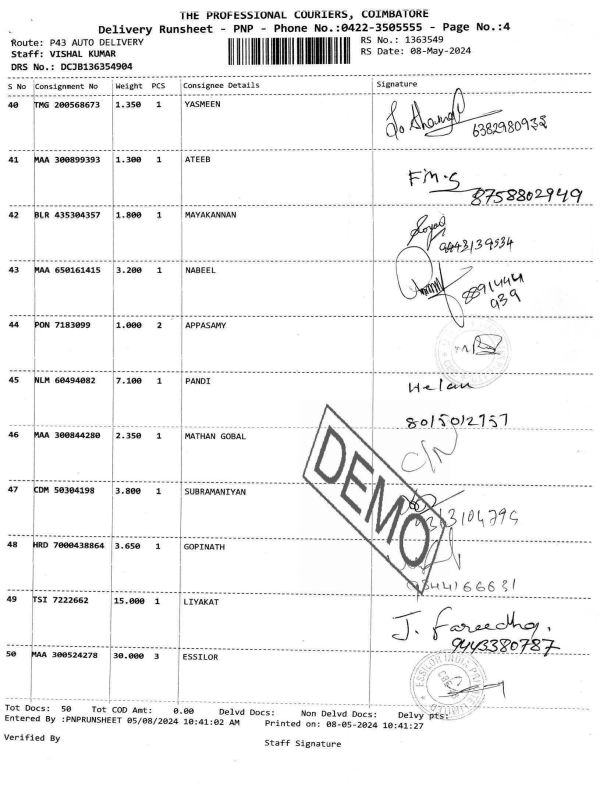 THE PROFESSIONAL COURIERS, COIMBATORE
Delivery Runsheet - PNP - Phone No.:0422-3505555 - Page No.:4
Route: P43 AUTO DELIVERY RS No.: 1363549
Staff: VISHAL KUMAR RS Date: 08-May-2024
DRS No.: DCJB136354904
S No Consignment No Weight PCS Consignee Details Signature
40 TMG 200568673 1.350 1 YASMEEN
6382980938
41 MAA 300899393 1.300 1 ATEEB
F.M.S
8758802949
42 BLR 435304357 1.800 1 MAYAKANNAN
9443139534
43 MAA 650161415 3.200 1 NABEEL
88914441
939
44 PON 7183099 1.000 2 APPASAMY
45 NLM 60494082 7.100 1 PANDI
Helan
8015012757
46 MAA 300844280 2.350 1 MATHAN GOBAL
C/N
47 CDM 50304198 3.800 1 SUBRAMANIYAN
DEMO
48 HRD 7000438864 3.650 1 GOPINATH
9344166631
49 TSI 7222662 15.000 1 LIYAKAT
J. Fareedha.
9443380787
50 MAA 300524278 30.000 3 ESSILOR
ESSILOR INDIA
Tot Docs: 50 Tot COD Amt: 0.00 Delvd Docs: Non Delvd Docs: Delvy pts:
Entered By :PNPRUNSHEET 05/08/2024 10:41:02 AM Printed on: 08-05-2024 10:41:27
Verified By Staff Signature